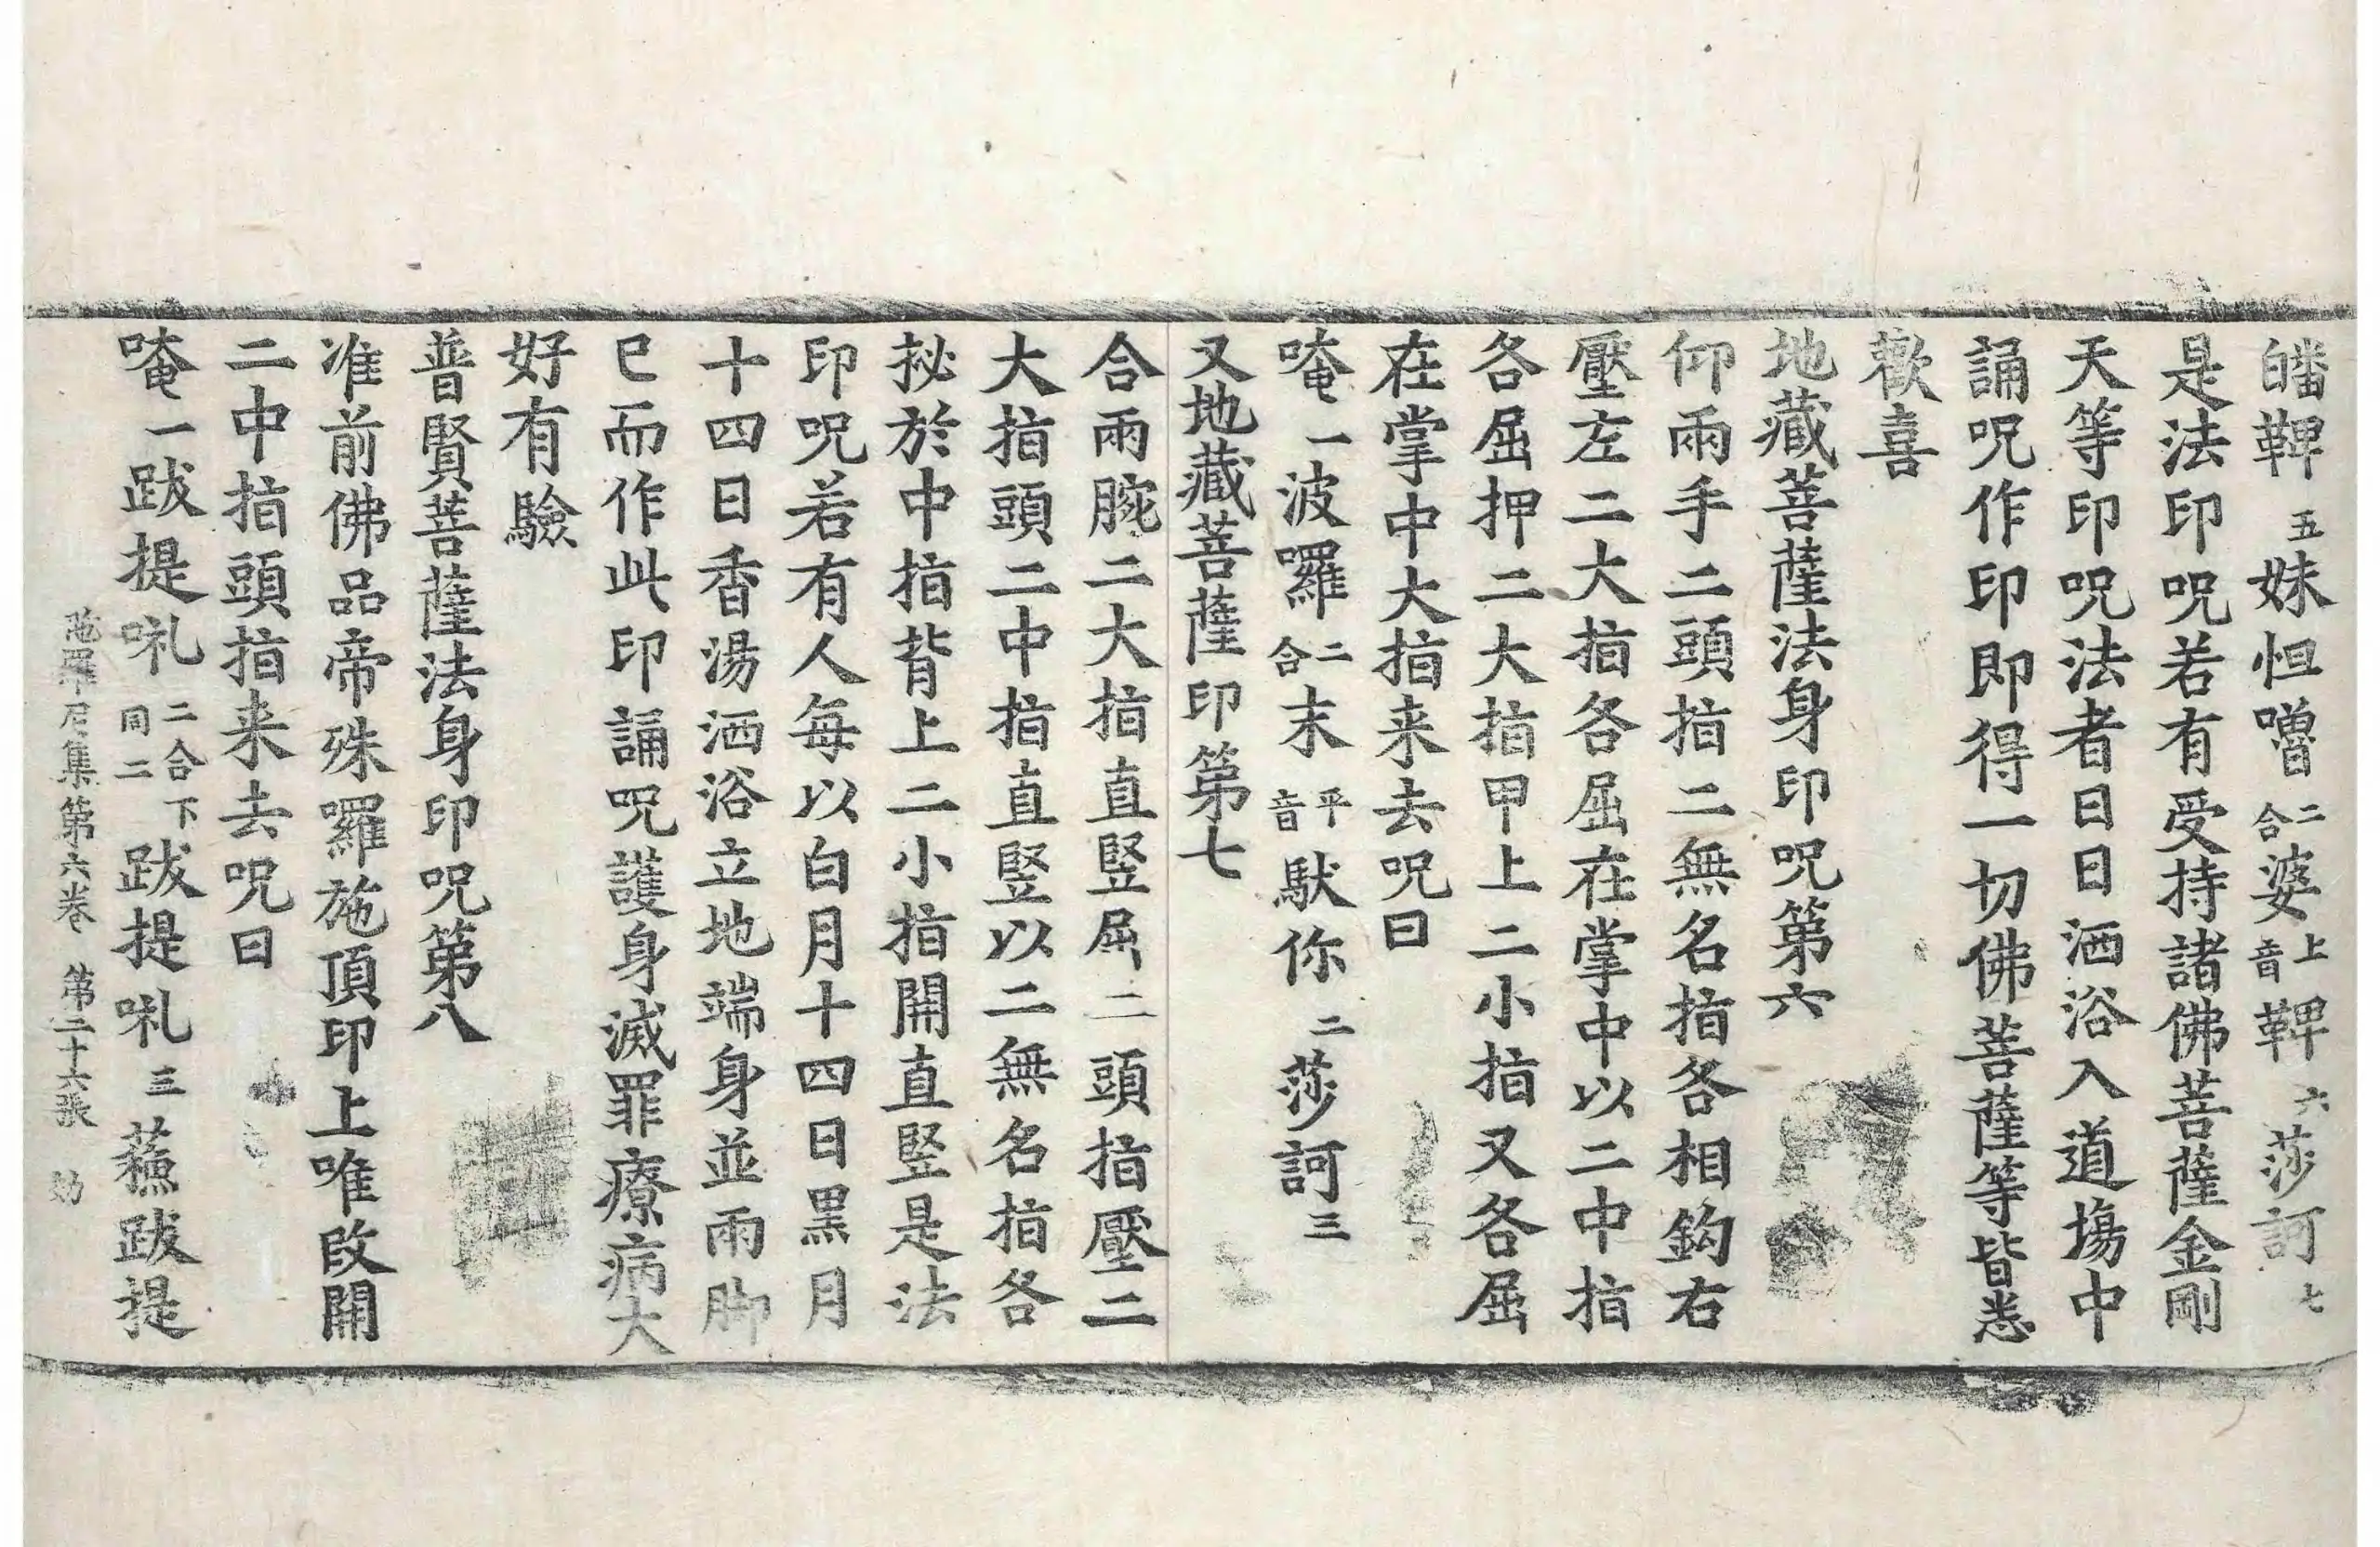 皤鞞五妹怛嚕二合婆上音鞞六莎訶七
是法印呪若有受持諸佛菩薩金剛
天等印呪法者日日洒浴入道場中
誦呪作印即得一切佛菩薩等皆悉
歡喜
地藏菩薩法身印呪第六
仰兩手二頭指二無名指各相鈎右
壓左二大指各屈在掌中以二中指
各屈押二大指甲上二小指又各屈
在掌中大指来去呪曰
唵一波囉二合末平音馱你二莎訶三
又地藏菩薩印第七
合兩腕二大指直竪屈二頭指壓二
大指頭二中指直竪以二無名指各
挘於中指背上二小指開直竪是法
印呪若有人每以白月十四日黒月
十四日香湯洒浴立地端身並兩脚
已而作此印誦呪護身滅罪療病大
好有驗
普賢菩薩法身印呪第八
准前佛品帝殊囉施頂印上唯改開
二中指頭指来去呪曰
唵一跋提㖿二合下同二跋提㖿三蘓跋提
陁羅尼集第六卷 第二十六張